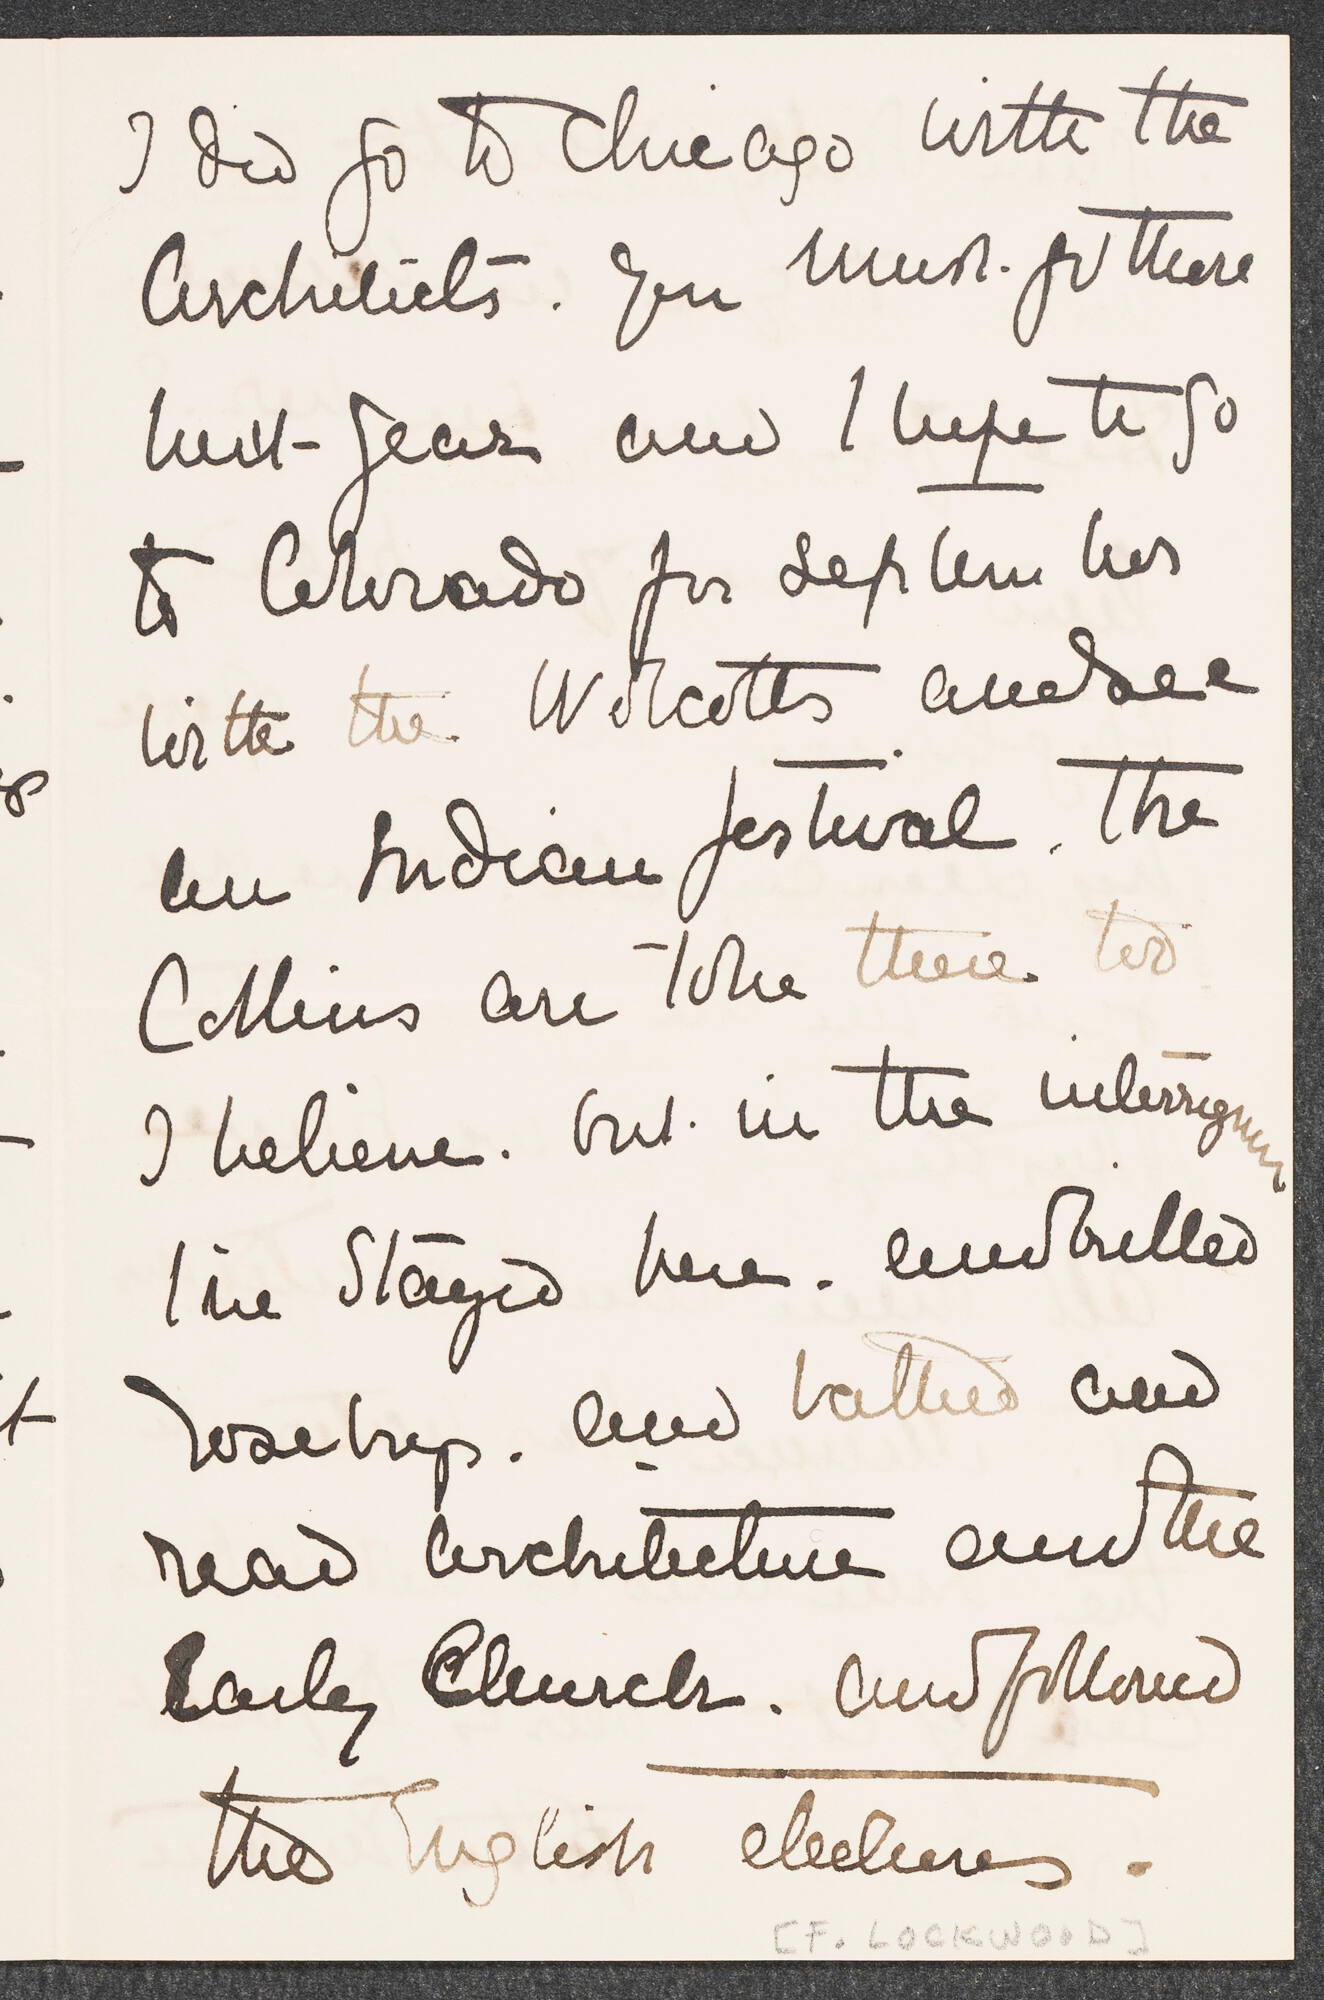 I did go to Chicago with the
Architects. You must go there
next year and I hope to go
to Colorado for September
with the Wolcotts and see
an Indian festival. The
Collins are to be there too
I believe. but in the interregnum
I've stayed here. and
rosebugs. and bathed and
read architecture and the
Early Church. and followed
the English elections.
[F. LOCKWOOD]